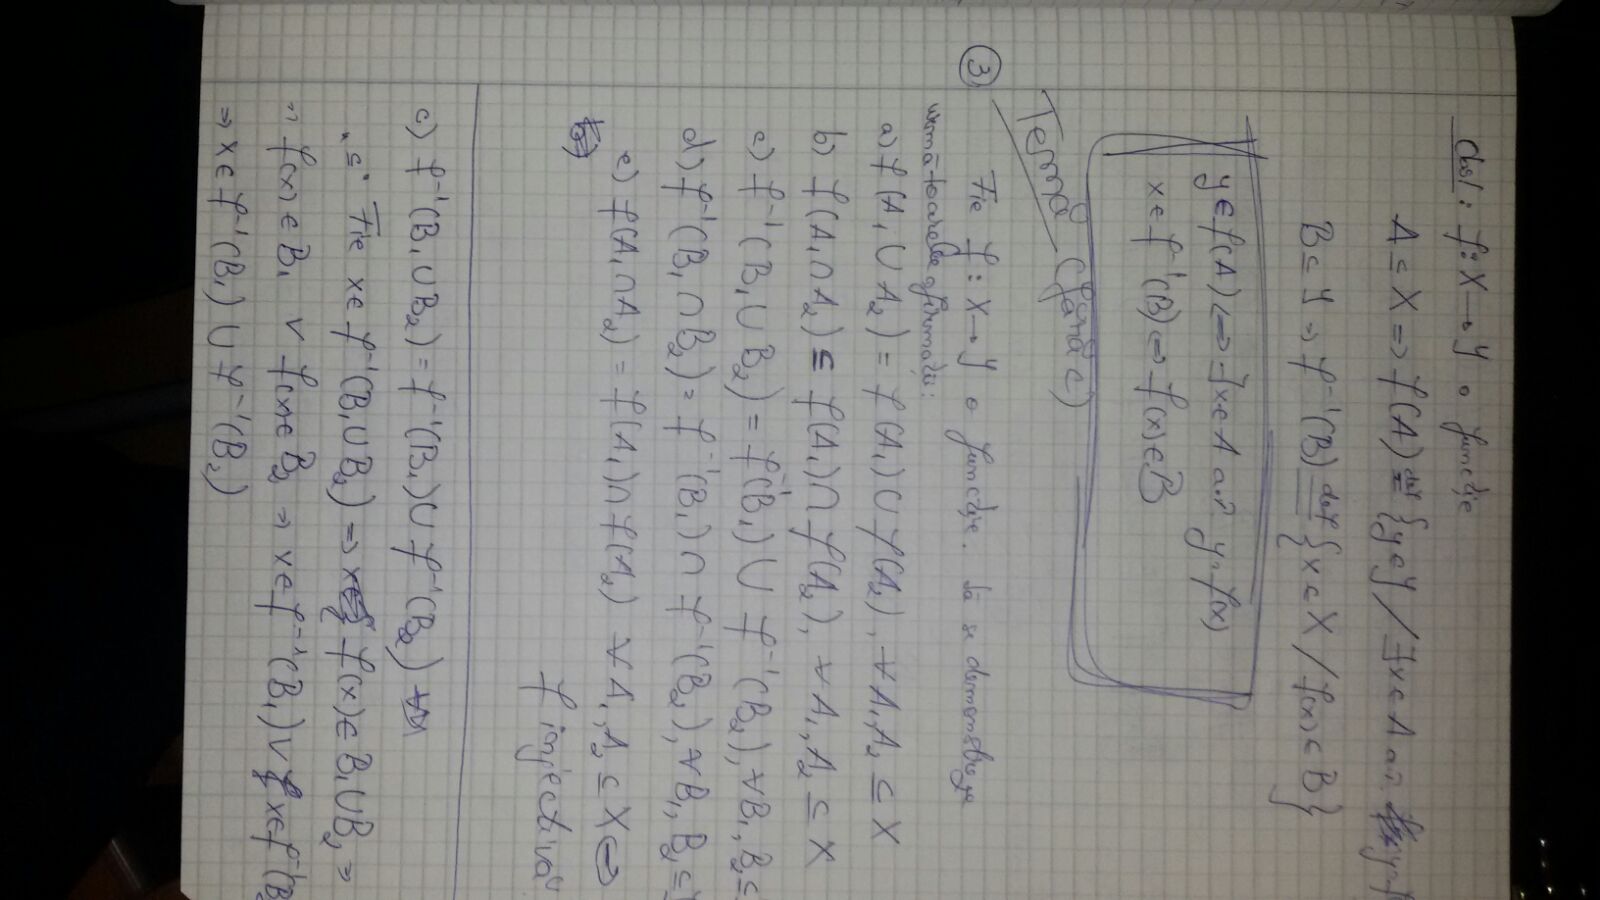 Def: f: X → Y o funcție
A ⊆ X => f(A) def= {y∈Y / ∃x∈A a.î. y=f
B ⊆ Y => f⁻¹(B) def= {x∈X / f(x)∈B}
y∈f(A) <=> ∃x∈A a.î. y=f(x)
x∈f⁻¹(B) <=> f(x)∈B
Temă (fără c)
③ Fie f: X → Y o funcție. Să se demonstreze
următoarele afirmații:
a) f(A₁∪A₂) = f(A₁)∪f(A₂), ∀A₁,A₂ ⊆ X
b) f(A₁∩A₂) ⊆ f(A₁)∩f(A₂), ∀A₁,A₂ ⊆ X
c) f⁻¹(B₁∪B₂) = f⁻¹(B₁)∪f⁻¹(B₂), ∀B₁,B₂⊆
d) f⁻¹(B₁∩B₂) = f⁻¹(B₁)∩f⁻¹(B₂), ∀B₁,B₂⊆
e) f(A₁∩A₂) = f(A₁)∩f(A₂) ∀A₁,A₂ ⊆ X <=>
f injectivă
c) f⁻¹(B₁∪B₂) = f⁻¹(B₁)∪f⁻¹(B₂)
"⊆" Fie x∈f⁻¹(B₁∪B₂) => f(x)∈B₁∪B₂ =>
=> f(x)∈B₁ ∨ f(x)∈B₂ => x∈f⁻¹(B₁) ∨ x∈f⁻¹(B₂
=> x∈f⁻¹(B₁)∪f⁻¹(B₂)